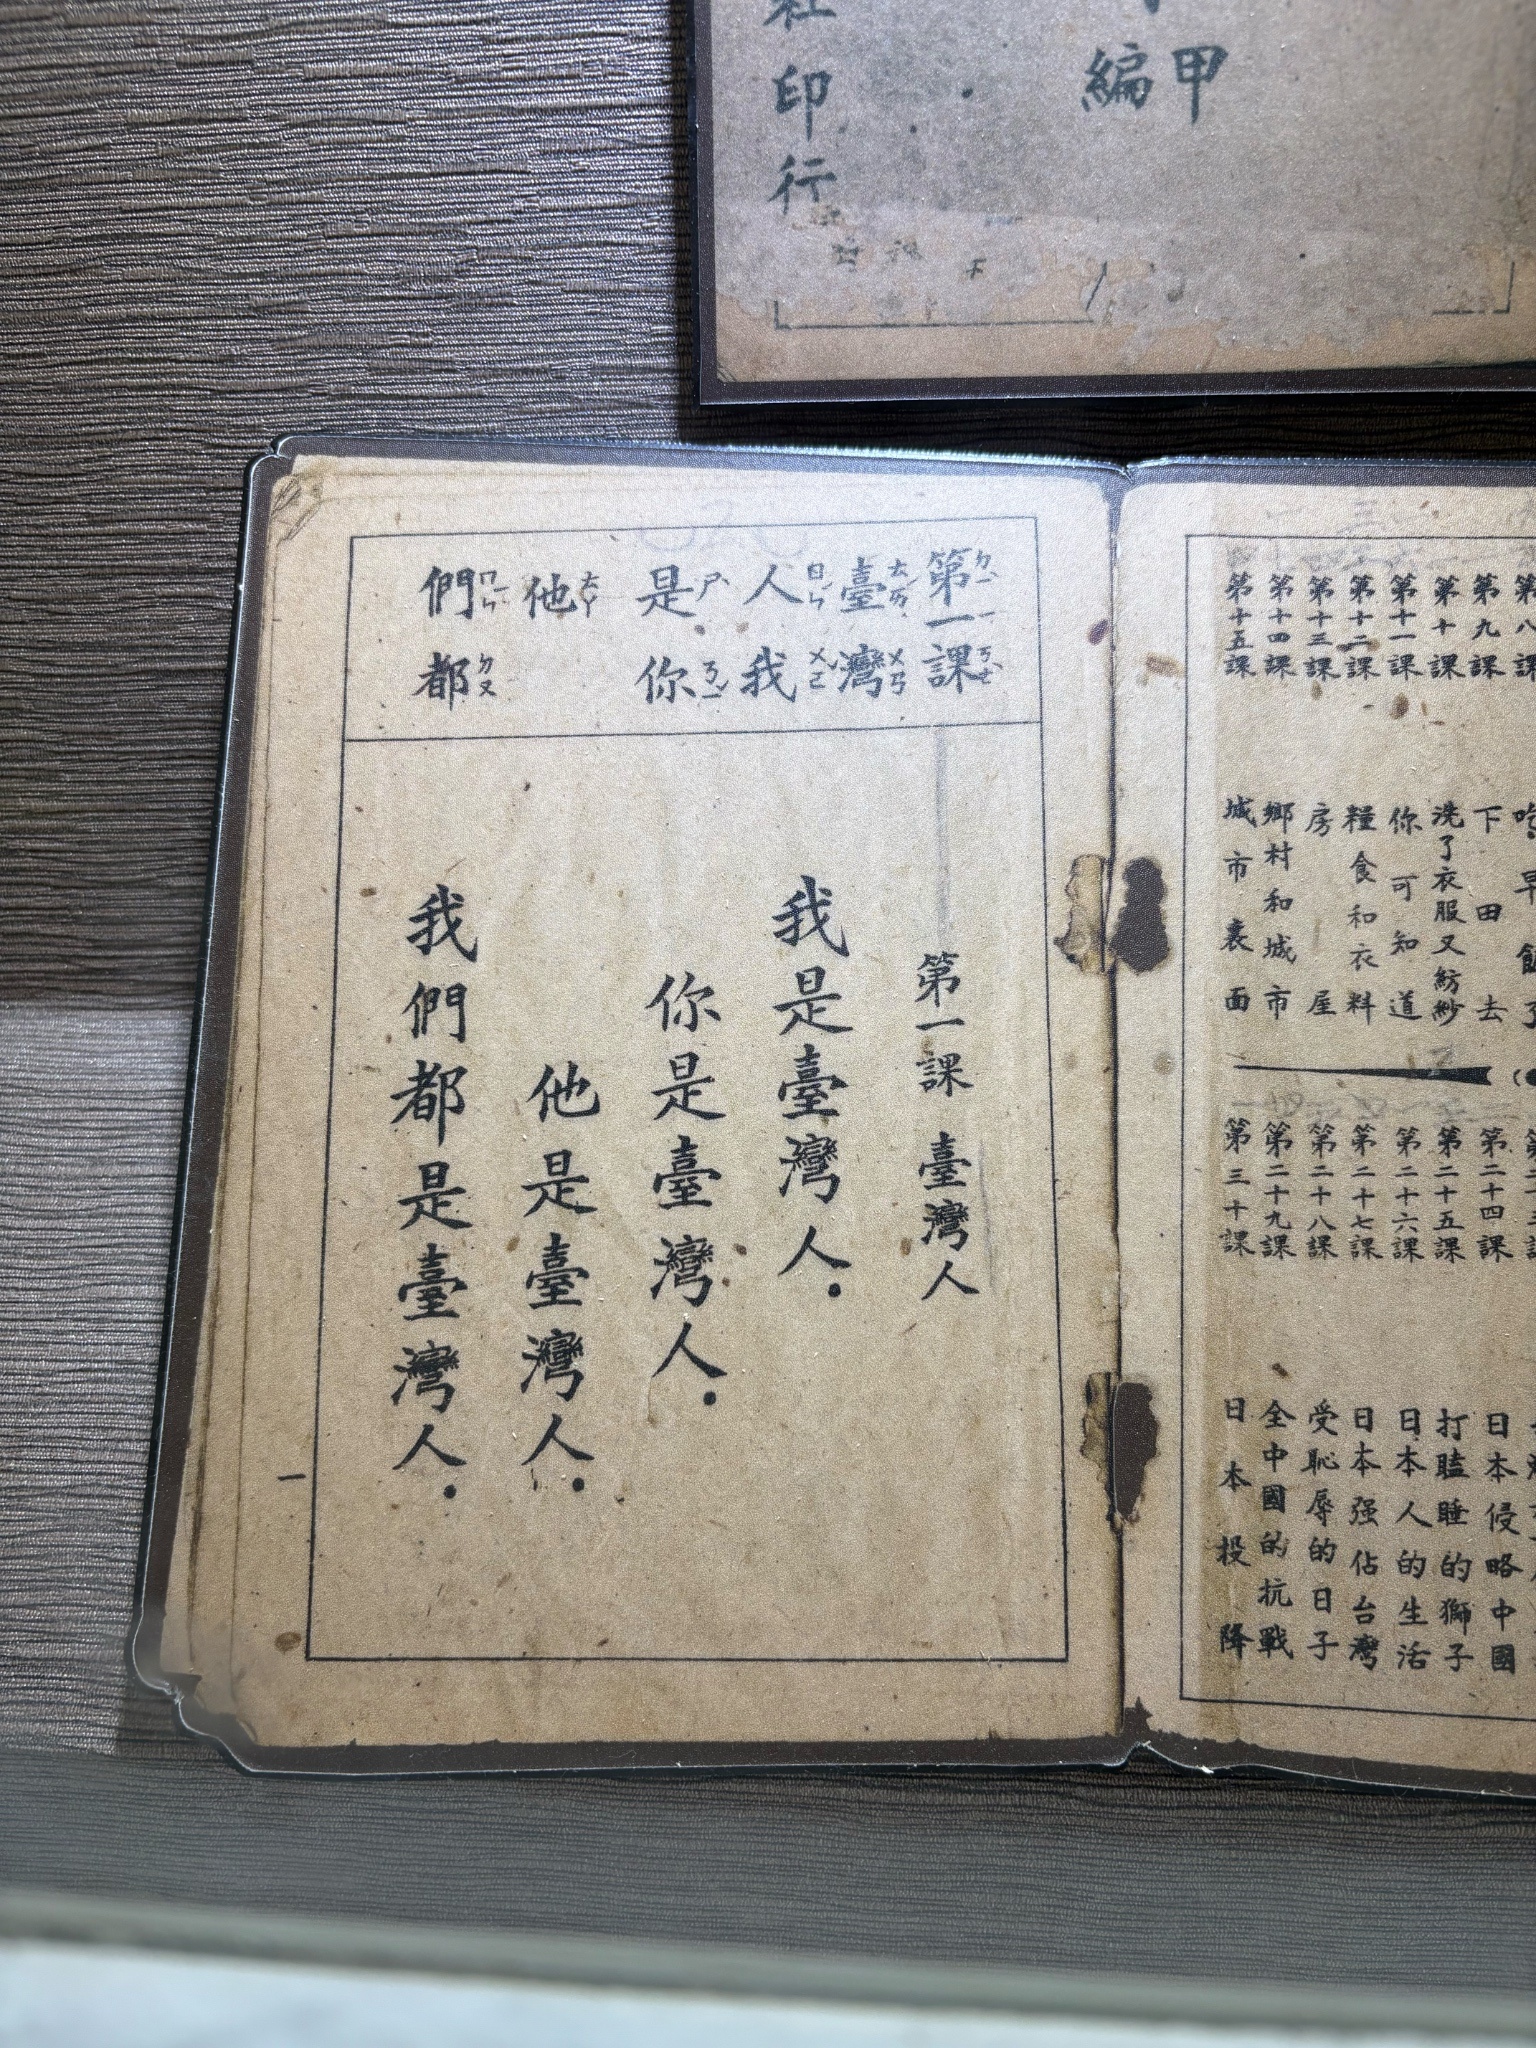 編
甲
社印行
第八課
第九課 下田去
第十課 洗了衣服又紡紗
第十一課 你可知道
第十二課 糧食和衣料
第十三課 房屋
第十四課 鄉村和城市
第十五課 城市裹面
第二十四課 日本侵略中國
第二十五課 打瞌睡的獅子
第二十六課 日本人的生活
第二十七課 日本强佔台灣
第二十八課 受恥辱的日子
第二十九課 全中國的抗戰
第三十課 日本投降
第ㄉㄧˋ一ㄧ課ㄎㄜˋ
臺ㄊㄞˊ灣ㄨㄢ
人ㄖㄣˊ我ㄨㄛˇ
是ㄕˋ你ㄋㄧˇ
他ㄊㄚ
們ㄇㄣˊ都ㄉㄡ
第一課 臺灣人
我是臺灣人.
你是臺灣人.
他是臺灣人.
我們都是臺灣人.
一